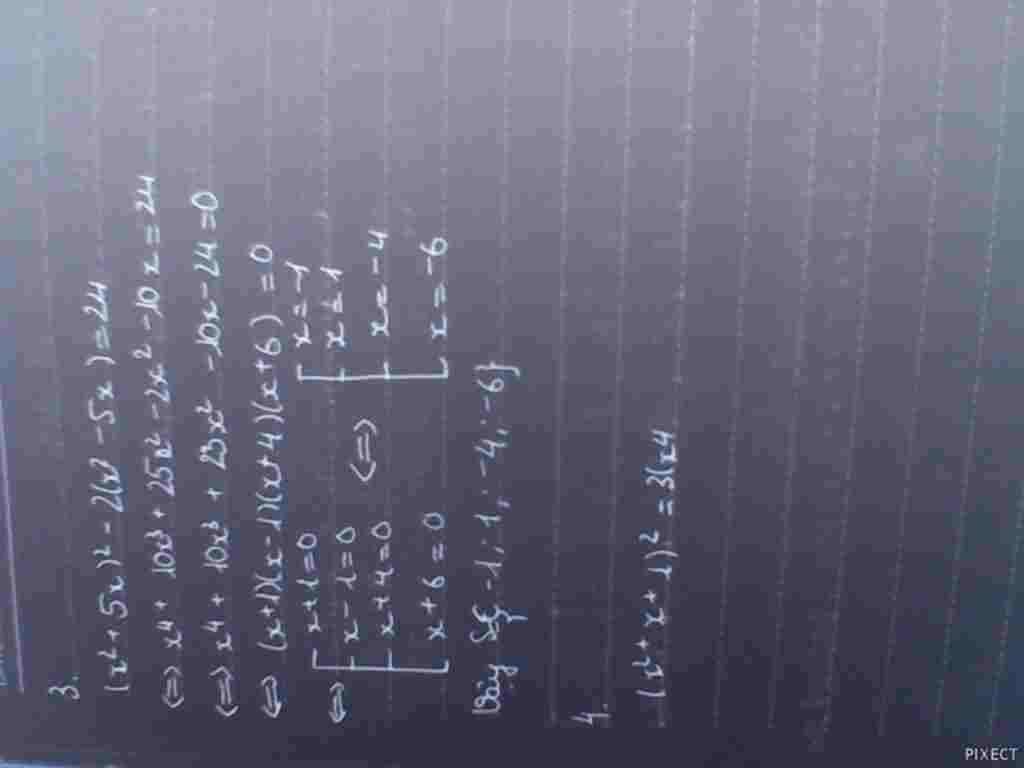 3.
(x² + 5x)² - 2(x² - 5x) = 24
<=> x⁴ + 10x³ + 25x² - 2x² - 10x = 24
<=> x⁴ + 10x³ + 23x² - 10x - 24 = 0
<=> (x+1)(x-1)(x+4)(x+6) = 0
<=> [ x+1=0 <=> [ x=-1
x-1=0 x=1
x+4=0 x=-4
x+6=0 x=-6
Vậy S{-1; 1; -4; -6}
4.
(x² + x + 1)² = 3(x4
PIXECT